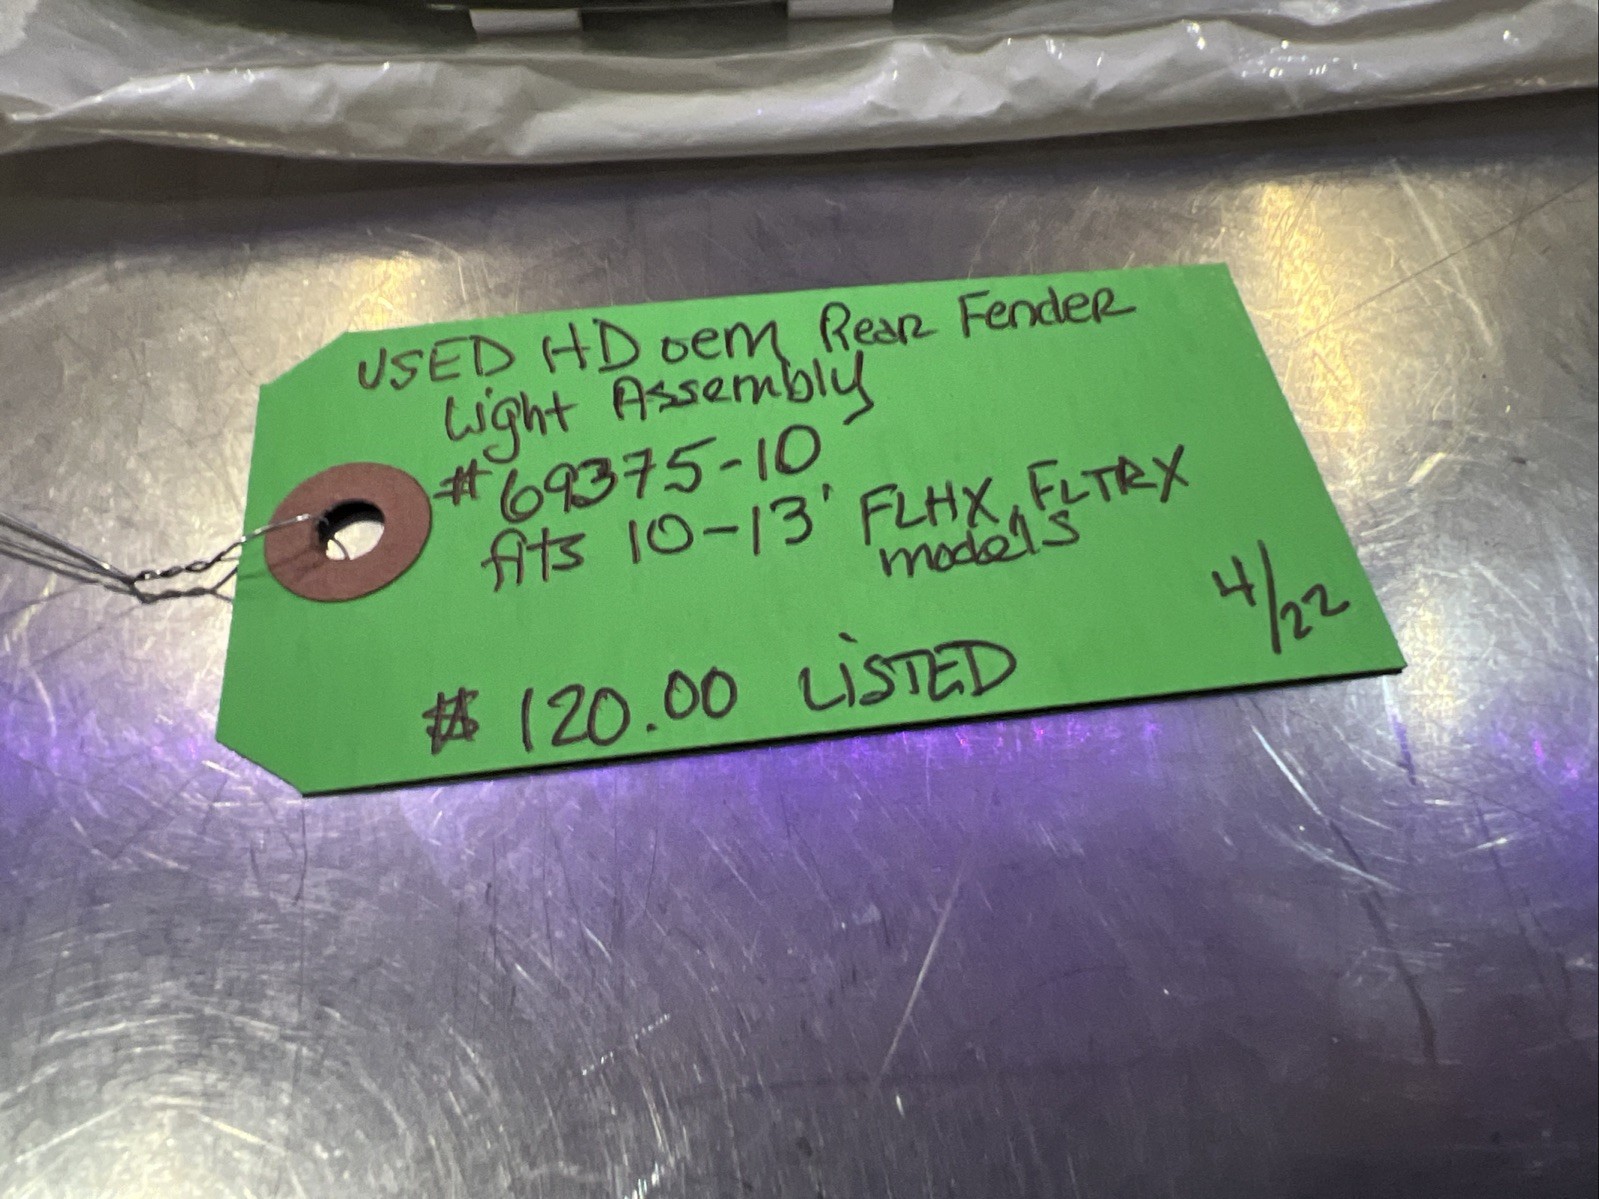 USED HD oem Rear Fender
Light Assembly
#69375-10
fits 10-13' FLHX, FLTRX
models
4/22
$120.00 LiSTED